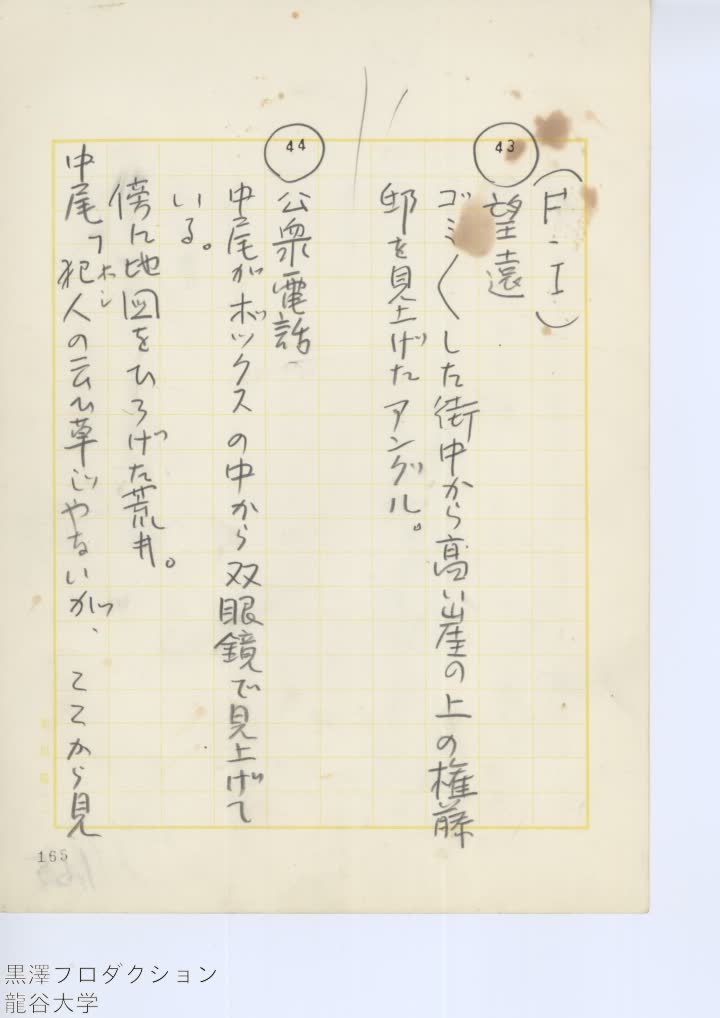 (F・I)
43
望遠
ゴミ〱した街中から高い崖の上の権藤
邸を見上げたアングル。
44
公衆電話
中尾がボックスの中から双眼鏡で見上げて
いる。
傍に地図をひろげた荒井。
中尾「犯人の云ひ草じやないが、ここから見
ホシ
165
黒澤プロダクション
龍谷大学